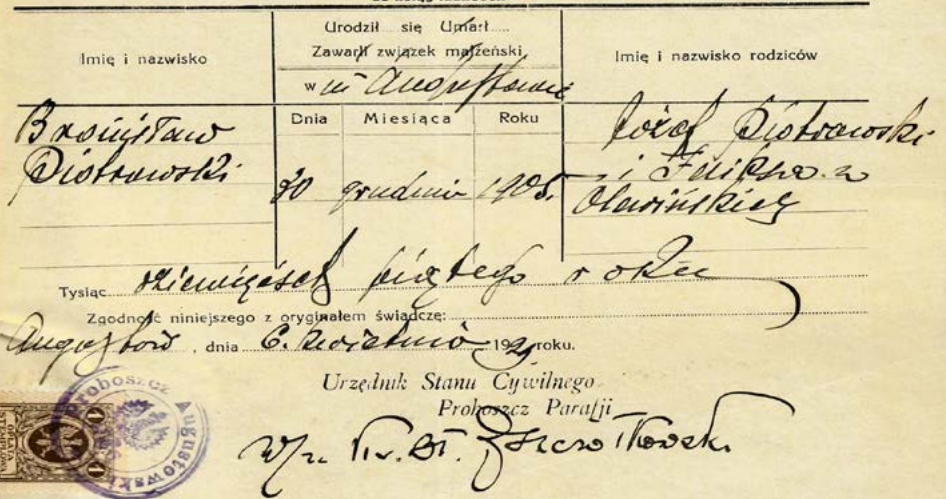 Imię i nazwisko
Urodził się Umarł
Zawarł związek małżeński
w m Augustowie
Imię i nazwisko rodziców
Dnia Miesiąca Roku
Bronisław
Piotrowski
20 grudnia 1905.
Józef Piotrowski
i Feliksa z
Olewińskich
Tysiąc dziewięćset piątego roku
Zgodność niniejszego z oryginałem świadczę:
Augustów, dnia 6. kwietnia 1929 roku.
Urzędnik Stanu Cywilnego
Proboszcz Parafji
w/z Kv. St. Szczotkowski
Proboszcz Augustowski
OPŁATA STEMPLOWA
1 1